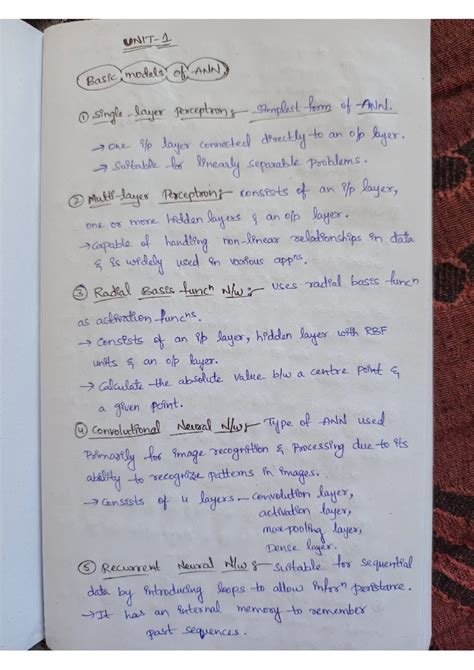 UNIT-1
Basic models of ANN
① Single-layer Perceptron:- Simplest form of ANN.
→ One i/p layer connected directly to an o/p layer.
→ Suitable for linearly separable problems.
② Multi-layer Perceptron:- consists of an i/p layer,
one or more hidden layers & an o/p layer.
→ capable of handling non-linear relationships in data
& is widely used in various appns.
③ Radial Basis funcn N/w:- uses radial basis funcn
as activation funcns.
→ Consists of an i/p layer, hidden layer with RBF
units & an o/p layer.
→ Calculate the absolute value b/w a centre point &
a given point.
④ Convolutional Neural N/w:- Type of ANN used
primarily for image recognition & processing due to its
ability to recognize patterns in images.
→ Consists of 4 layers - convolution layer,
activation layer,
max-pooling layer,
Dense layer.
⑤ Recurrent Neural N/w:- Suitable for sequential
data by introducing loops to allow inforn peristance.
→ It has an internal memory to remember
past sequences.